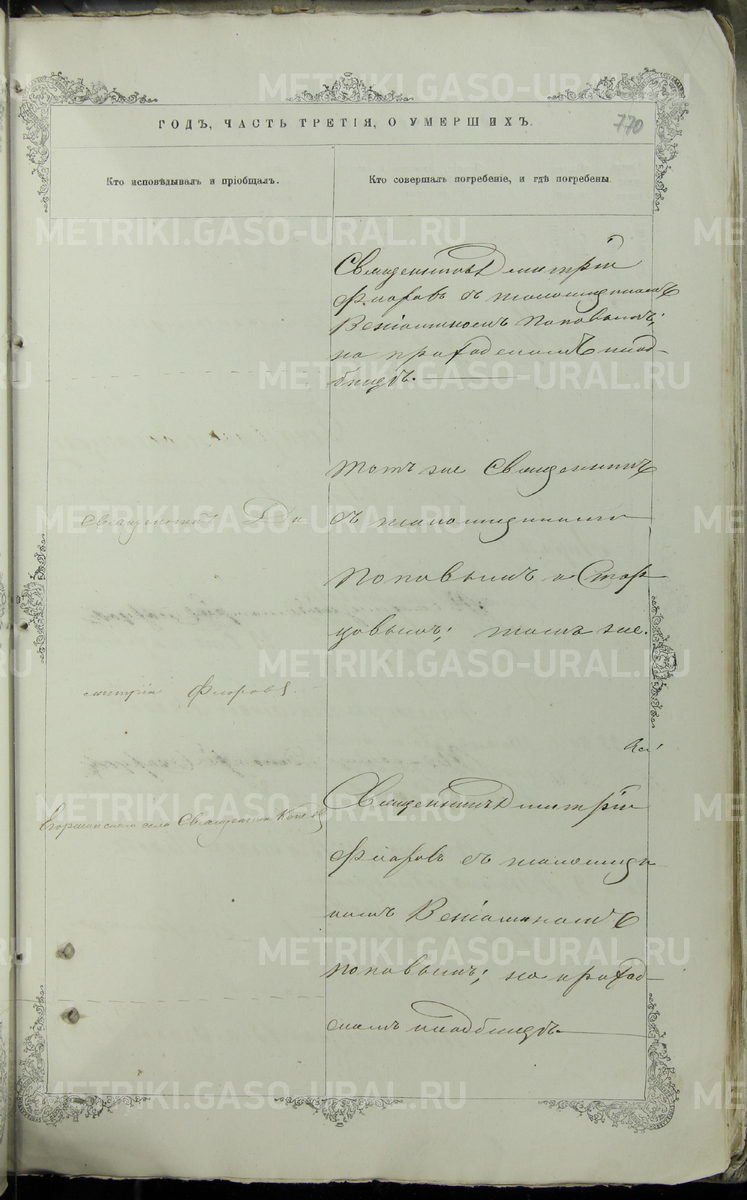 ГОДЪ, ЧАСТЬ ТРЕТІЯ, О УМЕРШИХЪ.
770
Кто исповѣдывалъ и пріобщалъ.
Кто совершалъ погребеніе, и гдѣ погребены.
Священникъ Димитрій
Флоровъ съ псаломщикомъ
Веніаминомъ Поповымъ;
на приходскомъ клад-
бищѣ.
Тотъ же Священникъ
съ псаломщиками
Поповымъ и Стар
цовымъ; тамъ же.
Священникъ Ди
митрій Флоровъ.
Священникъ Димитрій
Флоровъ съ псаломщи
комъ Веніаминомъ
Поповымъ; на приход-
скомъ кладбищѣ
Егоршинскаго села Священникъ
METRIKI.GASO-URAL.RU